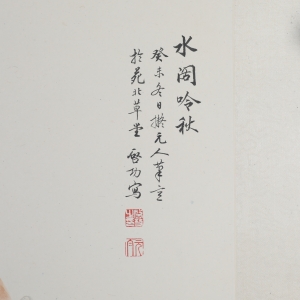 水阁吟秋
癸未冬日拟元人笔意
於苑北草堂 启功写